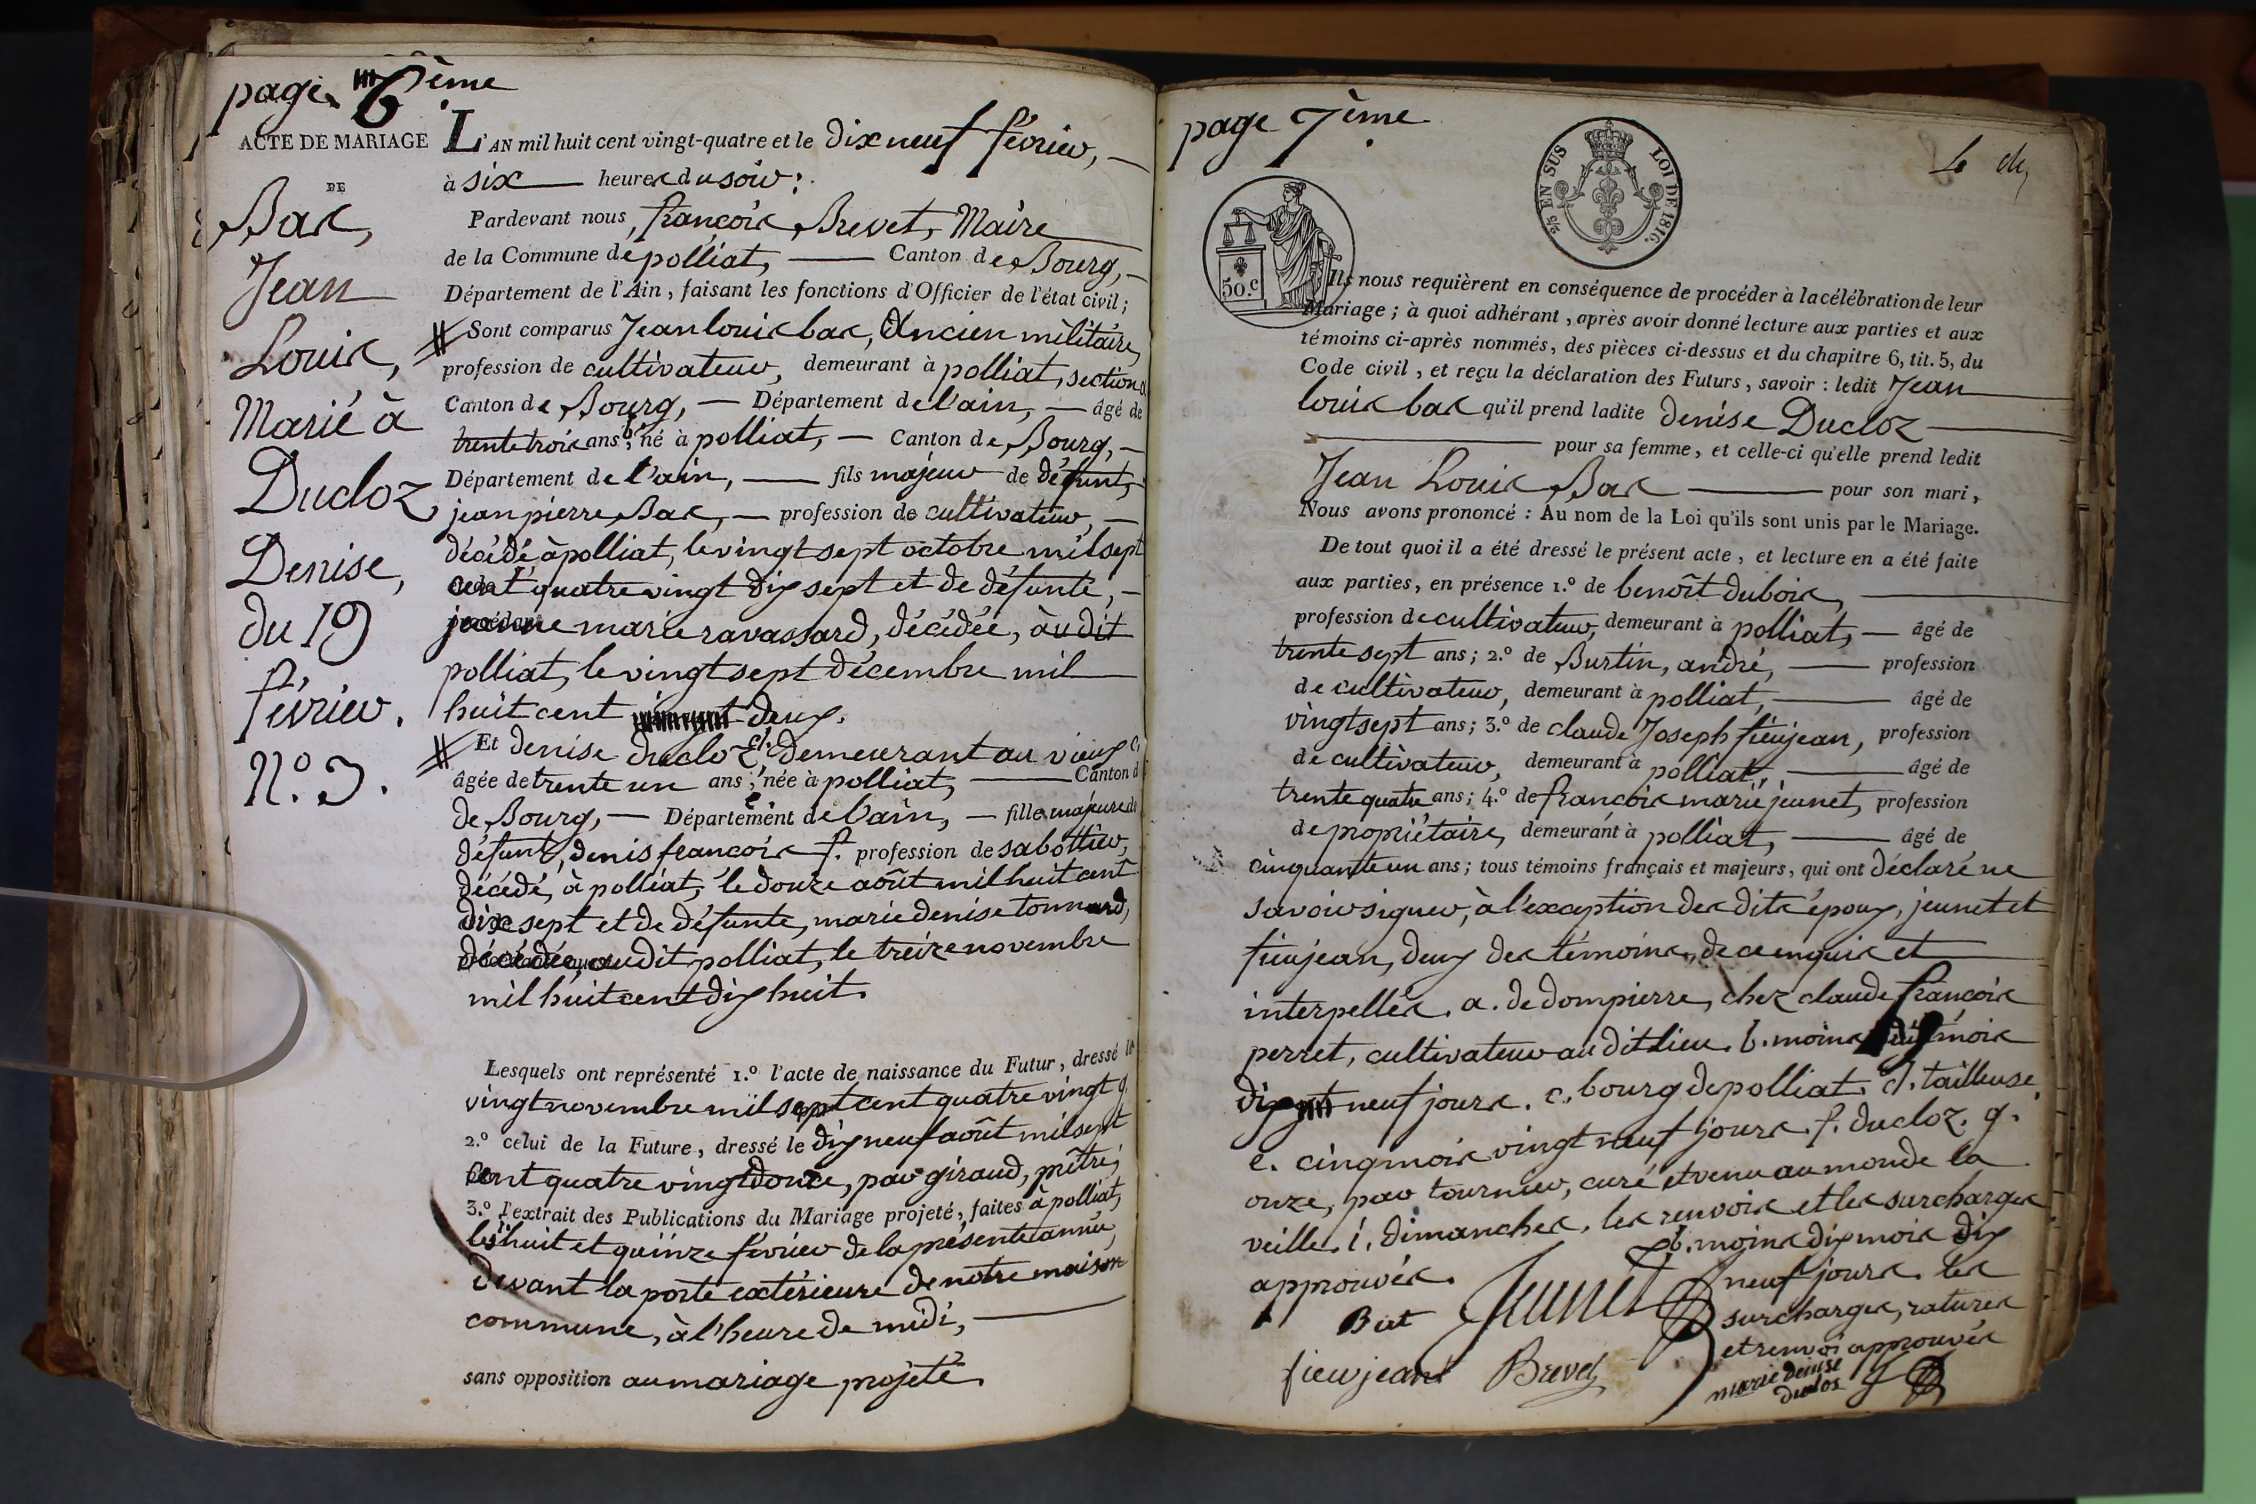 page 6ème
ACTE DE MARIAGE
DE
Bas,
Jean
Louis,
Marié à
Ducloz
Denise,
du 19
février.
N.o 3.
L'AN mil huit cent vingt-quatre et le dix neuf février,
à six heures du soir;
Pardevant nous, françois Brevet, Maire
de la Commune de polliat, Canton de Bourg,
Département de l'Ain, faisant les fonctions d'Officier de l'état civil;
Sont comparus Jean louis bas, Ancien militaire,
profession de cultivateur, demeurant à polliat, section a
Canton de Bourg, Département de l'ain, âgé de
trente trois ans b, né à polliat, Canton de Bourg,
Département de l'ain, fils majeur de défunt,
jean pierre Bas, profession de cultivateur,
décédé à polliat, le vingt sept octobre mil sept
cent quatre vingt dix sept et de défunte,
jeanne marie ravassard, décédée, àu dit
polliat, le vingt sept décembre mil
huit cent deux.
Et denise ducloz d. demeurant au vieux c.
âgée de trente un ans e, née à polliat, Canton d
de Bourg, Département de l'ain, fille majeure de
défunt, denis francois f. profession de sabottier,
décédé, à polliat, le douze août mil huit cent
dix sept et de défunte, marie denise tonnard,
décédée, audit polliat, le treize novembre
mil huit cent dix huit.
Lesquels ont représenté 1.o l'acte de naissance du Futur, dressé le
vingt novembre mil sept cent quatre vingt g
2.o celui de la Future, dressé le dix neuf août mil sept
cent quatre vingt douze, par giraud, prêtre,
3.o l'extrait des Publications du Mariage projeté, faites à polliat,
les i huit et quinze février de la présente année,
devant la porte extérieure de notre maison
commune, à l'heure de midi,
sans opposition au mariage projeté.
page 7ème
2/5 EN SUS LOI DE 1816.
50.c
Ils nous requièrent en conséquence de procéder à la célébration de leur
Mariage; à quoi adhérant, après avoir donné lecture aux parties et aux
témoins ci-après nommés, des pièces ci-dessus et du chapitre 6, tit. 5, du
Code civil, et reçu la déclaration des Futurs, savoir: ledit Jean
louis bas qu'il prend ladite denise Ducloz
pour sa femme, et celle-ci qu'elle prend ledit
Jean Louis Bas pour son mari,
Nous avons prononcé: Au nom de la Loi qu'ils sont unis par le Mariage.
De tout quoi il a été dressé le présent acte, et lecture en a été faite
aux parties, en présence 1.o de benoît dubois,
profession de cultivateur, demeurant à polliat, âgé de
trente sept ans; 2.o de Burtin, andré, profession
de cultivateur, demeurant à polliat, âgé de
vingt sept ans; 3.o de claude Joseph fieujean, profession
de cultivateur, demeurant à polliat, âgé de
trente quatre ans; 4.o de françois marie jeunet, profession
de propriétaire, demeurant à polliat, âgé de
cinquante un ans; tous témoins français et majeurs, qui ont déclaré ne
savoir signer, à l'exception des dits époux, jeunet et
fieujean, deux des témoins, de ce enquis et
interpellés. a. de dompierre, chez claude françois
perret, cultivateur au dit lieu. b. moins mois
dix neuf jours. c. bourg de polliat. d. tailleuse.
e. cinq mois vingt neuf jours. f. ducloz. g.
onze, par tournier, curé et venu au monde la
veille. i. dimanches. les renvois et les surcharges
approuvés.
b. moins dix mois dix
neuf jours. les
surcharges, ratures
et renvoi approuvés
Jeunet
fieujeant Brevet
marie denise
duclos